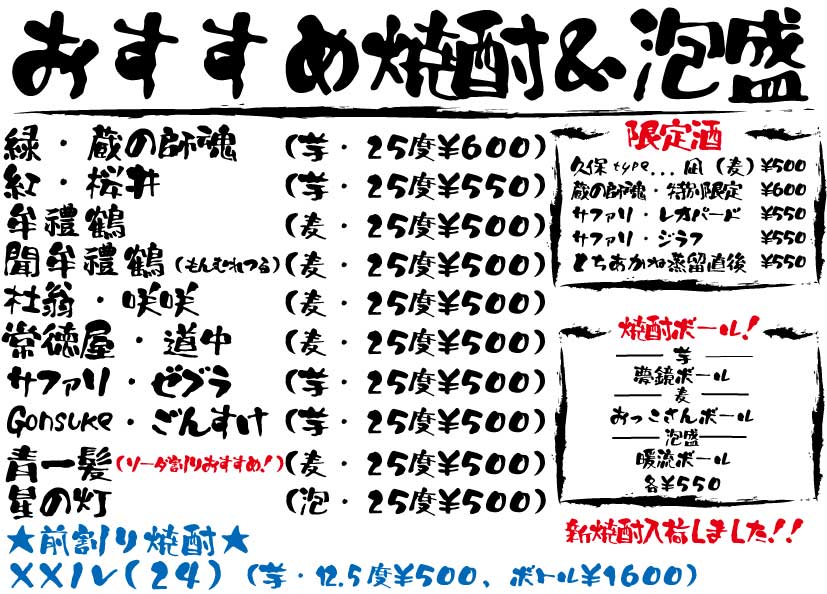 おすすめ焼酎&泡盛
緑・蔵の師魂 (芋・25度¥600)
紅・桜井 (芋・25度¥550)
牟禮鶴 (麦・25度¥500)
聞牟禮鶴(もんむれつる)(麦・25度¥500)
杜翁・咲咲 (麦・25度¥500)
常徳屋・道中 (麦・25度¥500)
サファリ・ゼブラ (芋・25度¥500)
Gonsuke・ごんすけ (芋・25度¥500)
青一髪(ソーダ割りおすすめ!)(麦・25度¥500)
星の灯 (泡・25度¥500)
★前割り焼酎★
XXIV(24)(芋・12.5度¥500、ボトル¥1600)
限定酒
久保type...凪(麦)¥500
蔵の師魂・特別限定 ¥600
サファリ・レオパード ¥550
サファリ・ジラフ ¥550
とちあかね蒸留直後 ¥550
焼酎ボール!
芋
夢鏡ボール
麦
おっこさんボール
泡盛
暖流ボール
各¥550
新焼酎入荷しました!!